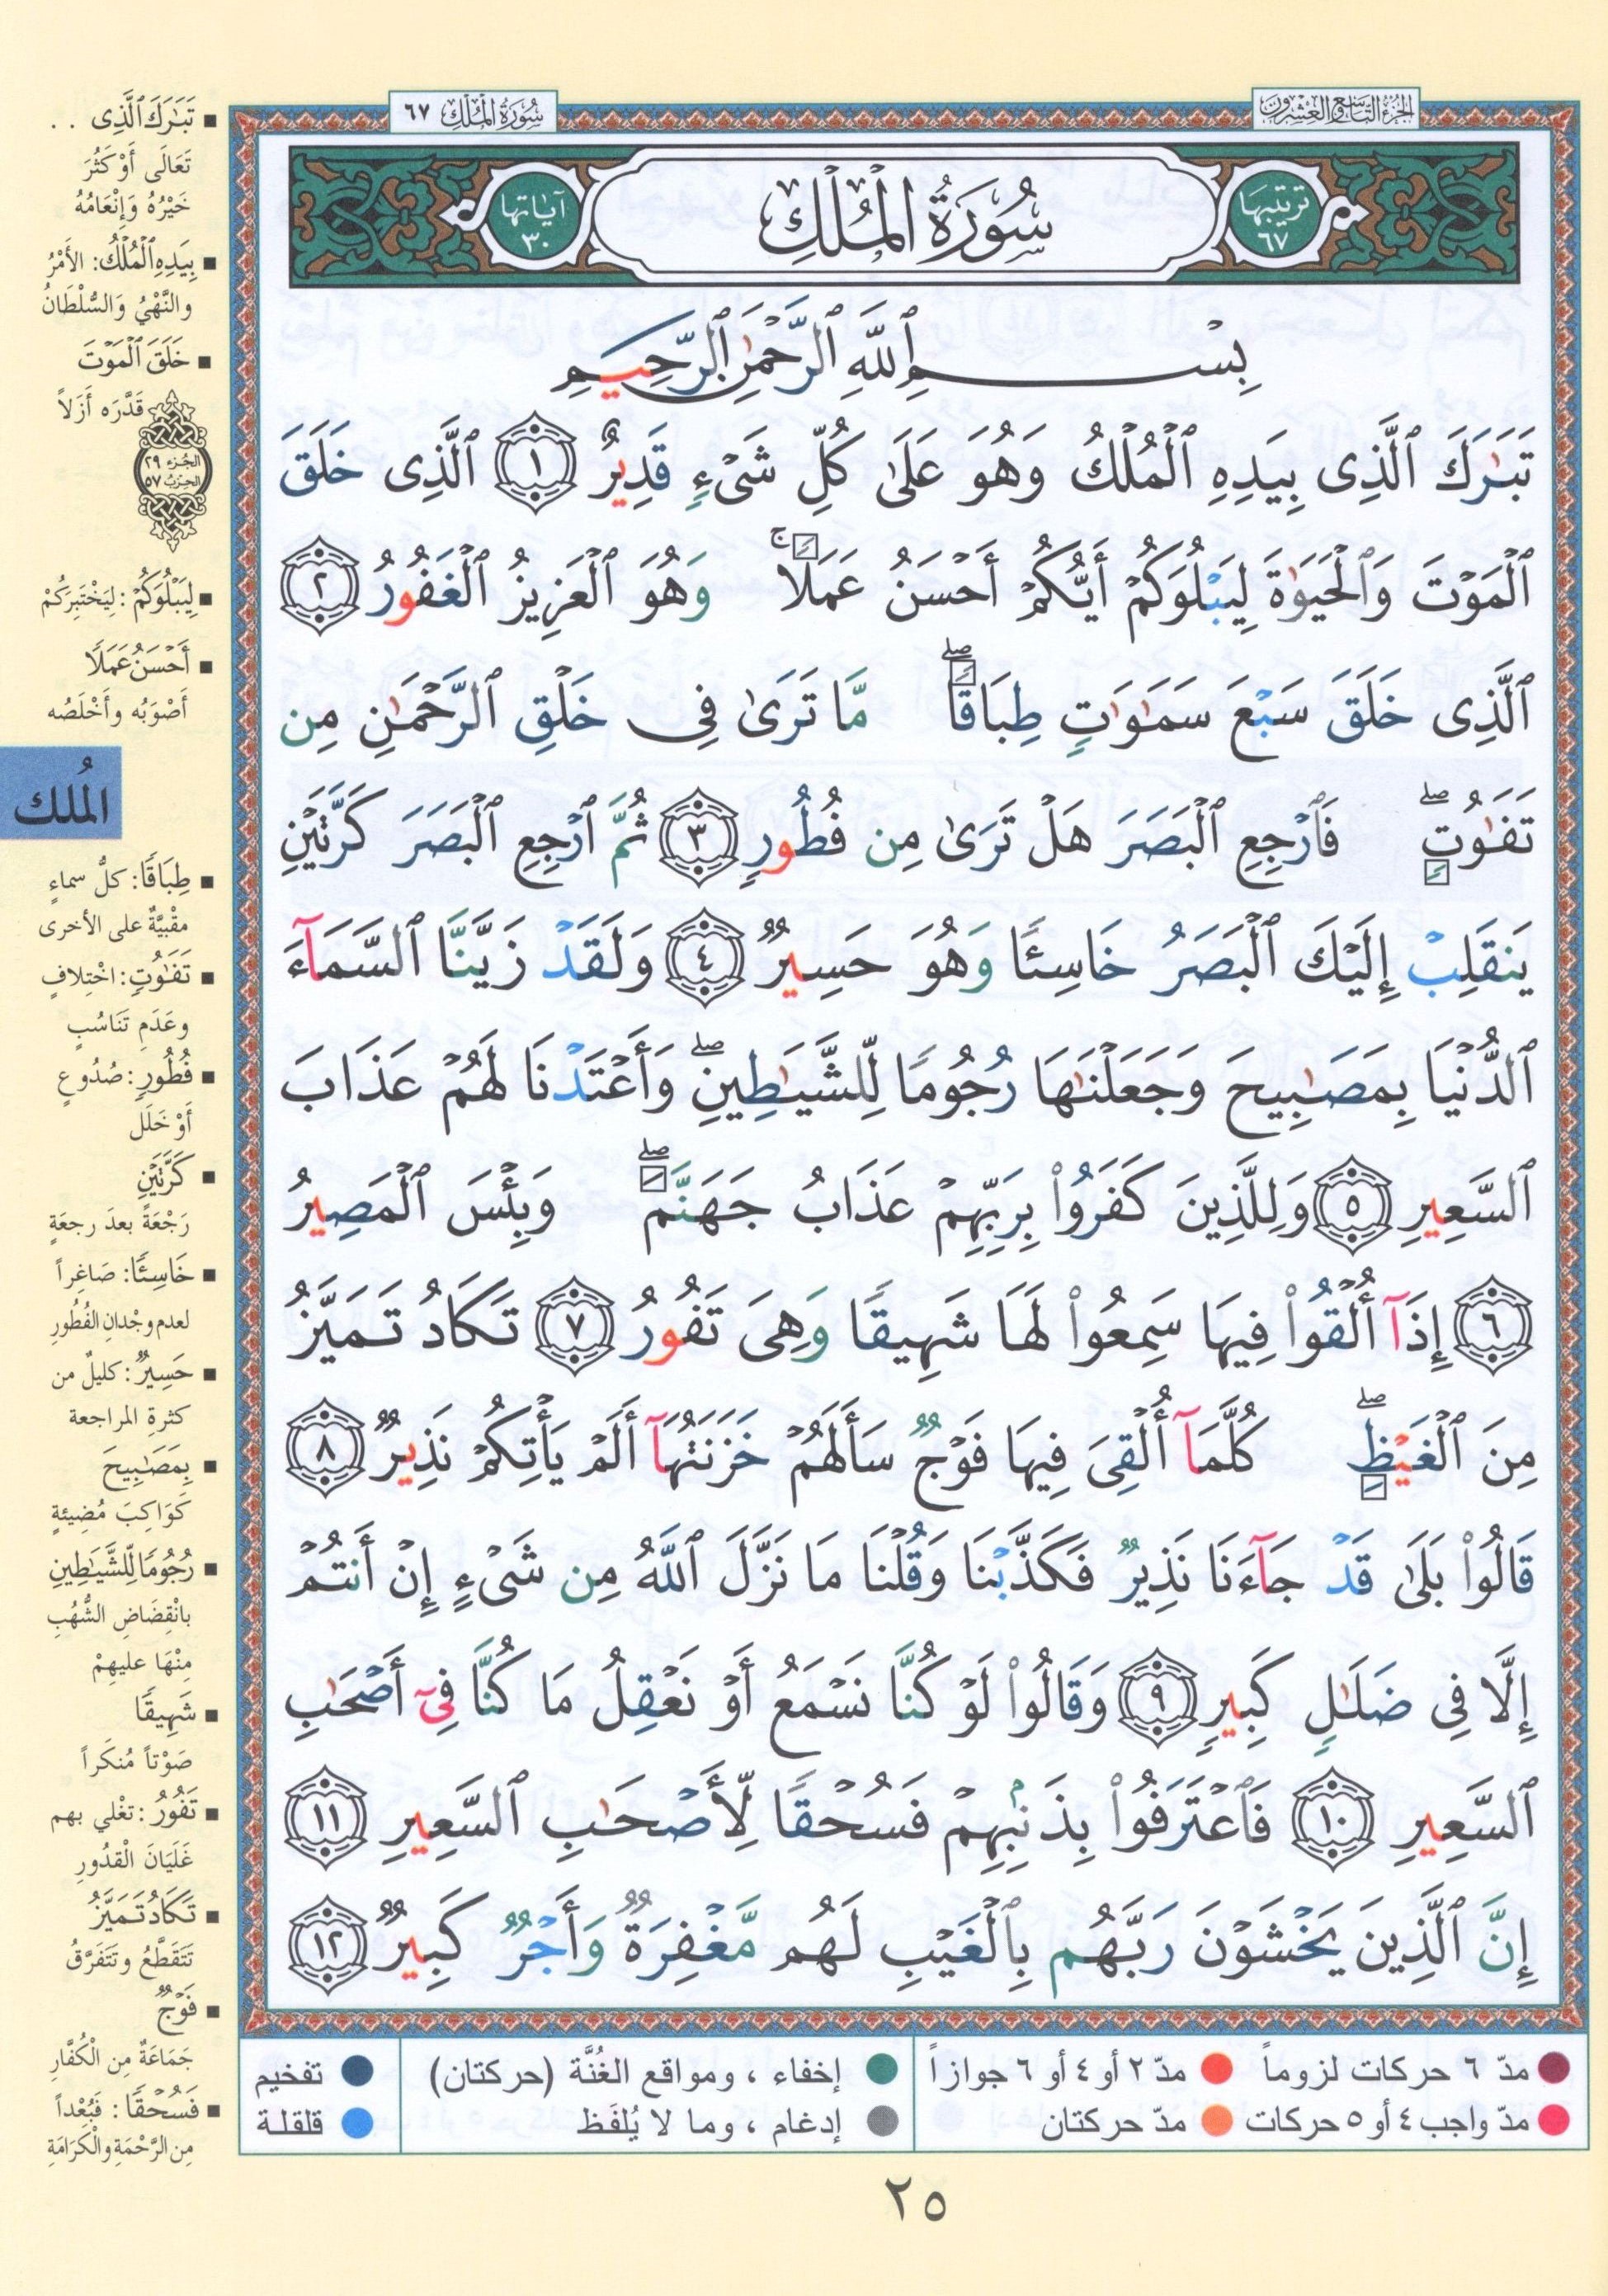 الجزء التاسع والعشرون
سُورَةُ الْمُلْكِ ٦٧
ترتيبها ٦٧
سُورَةُ الْمُلْكِ
آياتها ٣٠
بِسْمِ ٱللَّهِ ٱلرَّحْمَٰنِ ٱلرَّحِيمِ
تَبَٰرَكَ ٱلَّذِى بِيَدِهِ ٱلْمُلْكُ وَهُوَ عَلَىٰ كُلِّ شَىْءٍ قَدِيرٌ ١ ٱلَّذِى خَلَقَ
ٱلْمَوْتَ وَٱلْحَيَوٰةَ لِيَبْلُوَكُمْ أَيُّكُمْ أَحْسَنُ عَمَلًا ۚ وَهُوَ ٱلْعَزِيزُ ٱلْغَفُورُ ٢
ٱلَّذِى خَلَقَ سَبْعَ سَمَٰوَٰتٍ طِبَاقًا ۖ مَّا تَرَىٰ فِى خَلْقِ ٱلرَّحْمَٰنِ مِن
تَفَٰوُتٍ ۖ فَٱرْجِعِ ٱلْبَصَرَ هَلْ تَرَىٰ مِن فُطُورٍ ٣ ثُمَّ ٱرْجِعِ ٱلْبَصَرَ كَرَّتَيْنِ
يَنقَلِبْ إِلَيْكَ ٱلْبَصَرُ خَاسِئًا وَهُوَ حَسِيرٌ ٤ وَلَقَدْ زَيَّنَّا ٱلسَّمَآءَ
ٱلدُّنْيَا بِمَصَٰبِيحَ وَجَعَلْنَٰهَا رُجُومًا لِّلشَّيَٰطِينِ ۖ وَأَعْتَدْنَا لَهُمْ عَذَابَ
ٱلسَّعِيرِ ٥ وَلِلَّذِينَ كَفَرُوا۟ بِرَبِّهِمْ عَذَابُ جَهَنَّمَ ۖ وَبِئْسَ ٱلْمَصِيرُ
٦ إِذَآ أُلْقُوا۟ فِيهَا سَمِعُوا۟ لَهَا شَهِيقًا وَهِىَ تَفُورُ ٧ تَكَادُ تَمَيَّزُ
مِنَ ٱلْغَيْظِ ۖ كُلَّمَآ أُلْقِىَ فِيهَا فَوْجٌ سَأَلَهُمْ خَزَنَتُهَآ أَلَمْ يَأْتِكُمْ نَذِيرٌ ٨
قَالُوا۟ بَلَىٰ قَدْ جَآءَنَا نَذِيرٌ فَكَذَّبْنَا وَقُلْنَا مَا نَزَّلَ ٱللَّهُ مِن شَىْءٍ إِنْ أَنتُمْ
إِلَّا فِى ضَلَٰلٍ كَبِيرٍ ٩ وَقَالُوا۟ لَوْ كُنَّا نَسْمَعُ أَوْ نَعْقِلُ مَا كُنَّا فِىٓ أَصْحَٰبِ
ٱلسَّعِيرِ ١٠ فَٱعْتَرَفُوا۟ بِذَنۢبِهِمْ فَسُحْقًا لِّأَصْحَٰبِ ٱلسَّعِيرِ ١١
إِنَّ ٱلَّذِينَ يَخْشَوْنَ رَبَّهُم بِٱلْغَيْبِ لَهُم مَّغْفِرَةٌ وَأَجْرٌ كَبِيرٌ ١٢
تَبَٰرَكَ ٱلَّذِى . .
تَعَالَى أَوْ كَثُرَ
خَيْرُهُ وَإِنْعَامُهُ
بِيَدِهِ ٱلْمُلْكُ: الأَمْرُ
والنَّهْيُ وَالسُّلْطَانُ
خَلَقَ ٱلْمَوْتَ
قَدَّرَه أَزَلاً
الجزء ٢٩
الحزب ٥٧
لِيَبْلُوَكُمْ: لِيَخْتَبِرَكُمْ
أَحْسَنُ عَمَلًا
أَصْوَبُه وأَخْلَصُه
المُلك
طِبَاقًا: كلُّ سماءٍ
مقْبِيَّةٌ على الأخرى
تَفَٰوُتٍ: اخْتِلافٍ
وعَدَمِ تَنَاسُبٍ
فُطُورٍ: صُدُوعٍ
أَوْ خَلَل
كَرَّتَيْنِ
رَجْعَةً بعدَ رجعَةٍ
خَاسِئًا: صَاغِراً
لعدم وجْدانِ الفُطُورِ
حَسِيرٌ: كليلٌ من
كثرةِ المراجعة
بِمَصَٰبِيحَ
كَوَاكِبَ مُضِيئةٍ
رُجُومًا لِّلشَّيَٰطِينِ
بانْقِضَاضِ الشُّهُبِ
مِنْهَا عليهِمْ
شَهِيقًا
صَوْتاً مُنكَراً
تَفُورُ: تغْلي بهم
غَلَيَانَ الْقدُورِ
تَكَادُ تَمَيَّزُ
تَتَقَطَّعُ وتتَفَرَّقُ
فَوْجٌ
جَمَاعَةٌ مِن الْكُفَّارِ
فَسُحْقًا: فَبُعْداً
مِن الرَّحْمَةِ والْكَرَامَةِ
مدّ ٦ حركات لزوماً مدّ ٢ أو ٤ أو ٦ جوازاً إخفاء ، ومواقع الغُنَّة (حركتان) تفخيم
مدّ واجب ٤ أو ٥ حركات مدّ حركتان إدغام ، وما لا يُلفَظ قلقلة
٢٥